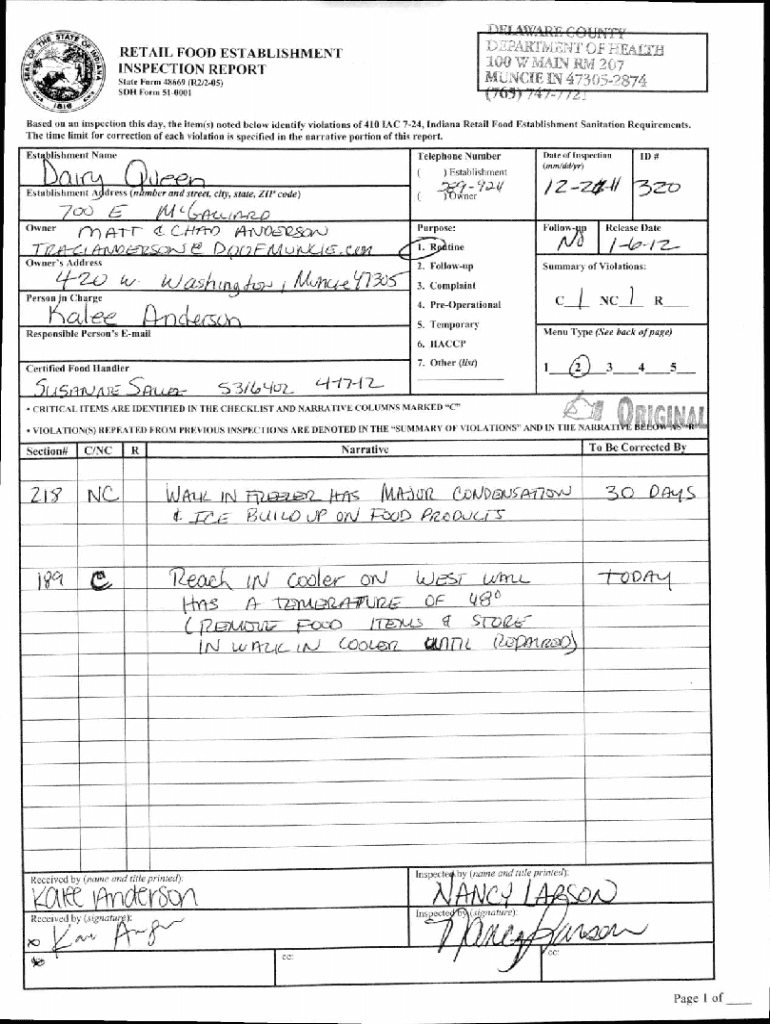 SEAL OF THE STATE OF INDIANA
1816
RETAIL FOOD ESTABLISHMENT
INSPECTION REPORT
State Form 48669 (R2/2-05)
SDH Form 51-0001
DELAWARE COUNTY
DEPARTMENT OF HEALTH
100 W MAIN RM 207
MUNCIE IN 47305-2874
(765) 747-7721
Based on an inspection this day, the item(s) noted below identify violations of 410 IAC 7-24, Indiana Retail Food Establishment Sanitation Requirements.
The time limit for correction of each violation is specified in the narrative portion of this report.
Establishment Name
Dairy Queen
Telephone Number
( ) Establishment
289-924
( ) Owner
Date of Inspection
(mm/dd/yr)
ID #
320
Establishment Address (number and street, city, state, ZIP code)
700 E McGALLIARD
Owner
MATT & CHAD ANDERSON
TRACIANDERSON@DQOFMUNCIE.com
Purpose:
1. Routine
2. Follow-up
3. Complaint
4. Pre-Operational
5. Temporary
6. HACCP
7. Other (list)
Follow-up
NO
Release Date
1-6-12
Owner's Address
420 W. Washington, Muncie 47305
Summary of Violations:
C 1 NC 1 R
Person in Charge
Kalee Anderson
Responsible Person's E-mail
Menu Type (See back of page)
1 2 3 4 5
Certified Food Handler
5316402 4-17-12
• CRITICAL ITEMS ARE IDENTIFIED IN THE CHECKLIST AND NARRATIVE COLUMNS MARKED "C"
ORIGINAL
• VIOLATION(S) REPEATED FROM PREVIOUS INSPECTIONS ARE DENOTED IN THE "SUMMARY OF VIOLATIONS" AND IN THE NARRATIVE BELOW AS "R"
Section# C/NC R Narrative To Be Corrected By
218 NC WALK IN FREEZER HAS MAJOR CONDENSATION 30 DAYS
& ICE BUILD UP ON FOOD PRODUCTS
189 C Reach IN Cooler ON WEST WALL TODAY
HAS A TEMPERATURE OF 48°
(REMOVE FOOD ITEMS & STORE
IN WALK IN COOLER UNTIL REPAIRED)
Received by (name and title printed):
Kalee Anderson
Inspected by (name and title printed):
NANCY LARSON
Received by (signature):
Inspected by (signature):
Nancy Larson
cc:
cc:
Page 1 of